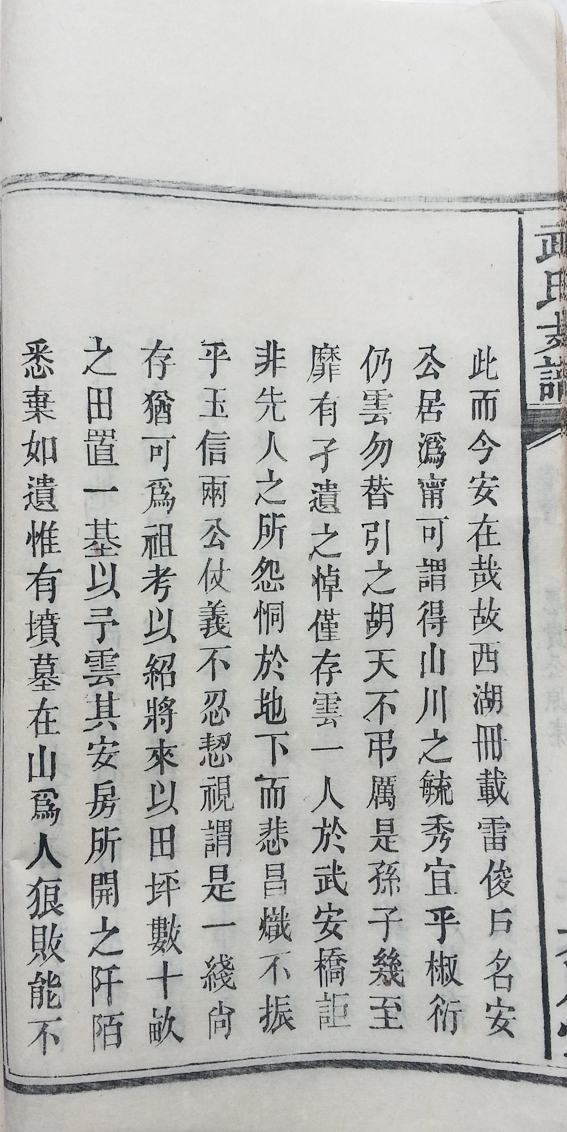 武氏支譜
此而今安在哉故西湖冊載雷俊戶名安
公居溈甯可謂得山川之毓秀宜乎椒衍
仍雲勿替引之胡天不弔厲是孫子幾至
靡有孑遺之悼僅存雲一人於武安橋詎
非先人之所怨恫於地下而悲昌熾不振
乎玉信兩公仗義不忍恝視謂是一綫尙
存猶可爲祖考以紹將來以田坪數十畝
之田置一基以予雲其安房所開之阡陌
悉棄如遺惟有墳墓在山爲人狼敗能不